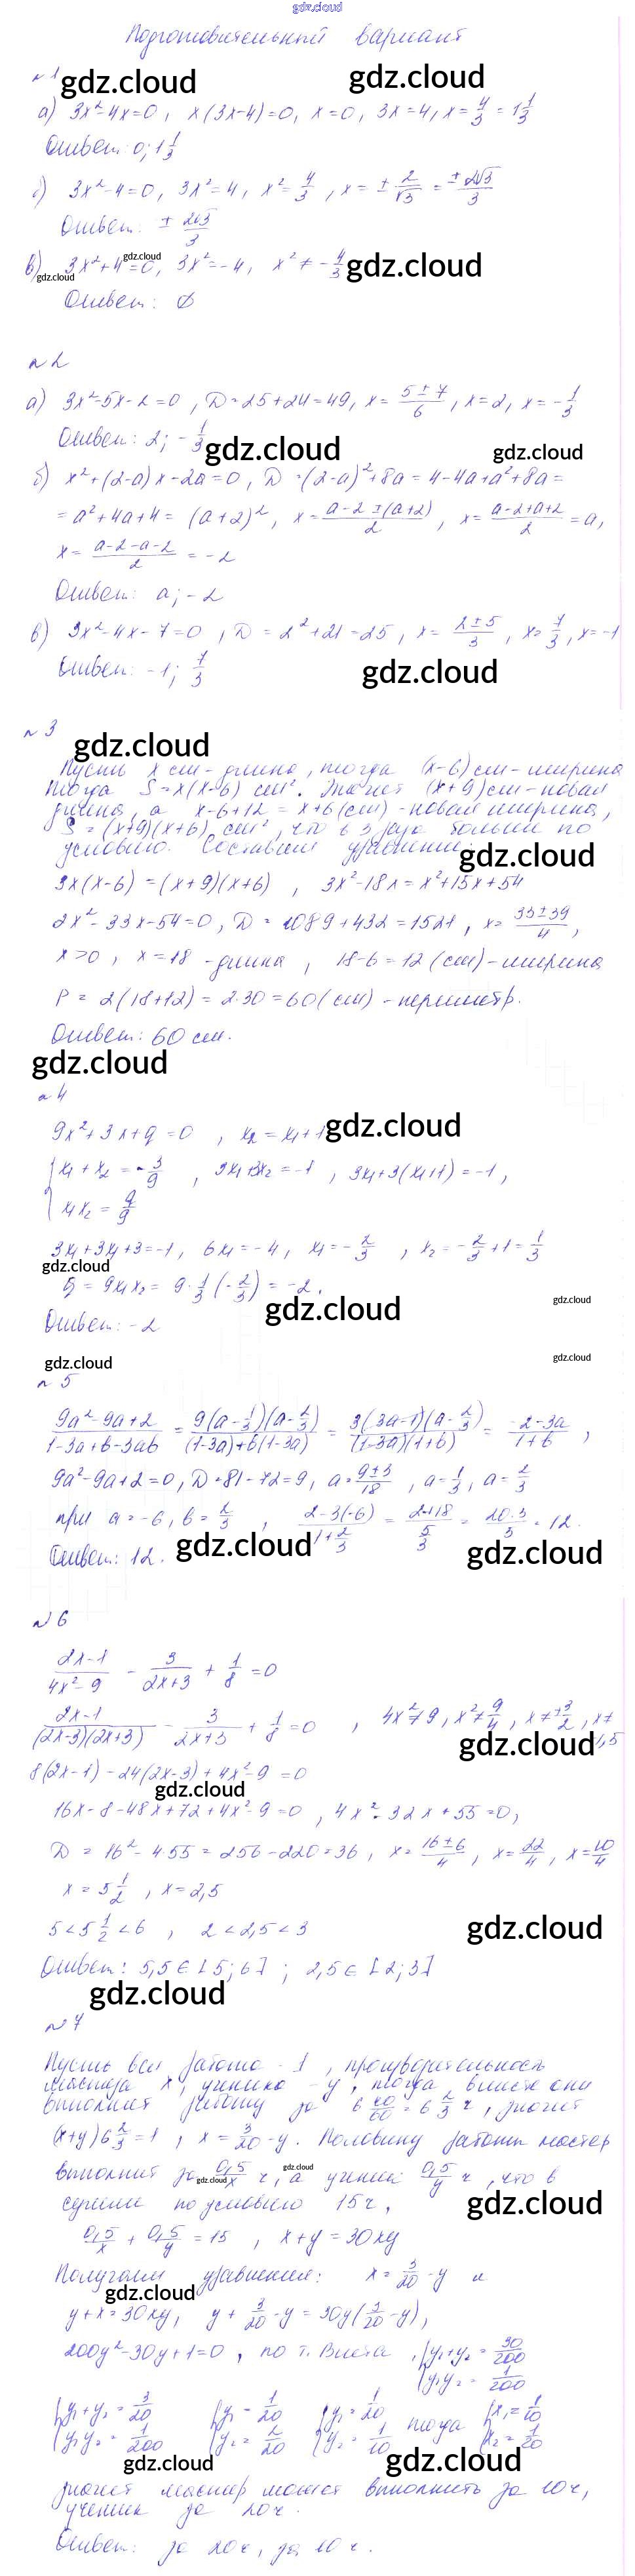 gdz.cloud
Подготовительный вариант
№1 gdz.cloud gdz.cloud
а) 3x²-4x=0, x(3x-4)=0, x=0, 3x=4, x=4/3=1 1/3
Ответ: 0; 1 1/3
б) 3x²-4=0, 3x²=4, x²=4/3, x=±2/√3=±2√3/3
Ответ: ±2√3/3
в) 3x²+4=0, 3x²=-4, x²≠-4/3 gdz.cloud
gdz.cloud gdz.cloud
Ответ: ∅
№2
а) 3x²-5x-2=0, D=25+24=49, x=(5±7)/6, x=2, x=-1/3
Ответ: 2; -1/3 gdz.cloud gdz.cloud
б) x²+(2-a)x-2a=0, D=(2-a)²+8a=4-4a+a²+8a=
=a²+4a+4=(a+2)², x=(a-2±(a+2))/2, x=(a-2+a+2)/2=a,
x=(a-2-a-2)/2=-2
Ответ: a; -2
в) 3x²-4x-7=0, D=2²+21=25, x=(2±5)/3, x=7/3, x=-1
Ответ: -1; 7/3 gdz.cloud
№3 gdz.cloud
Пусть x см - длина, тогда (x-6) см - ширина
тогда S=x(x-6) см². Значит (x+9) см - новая
длина, а x-6+12=x+6 (см) - новая ширина,
S=(x+9)(x+6) см², что в 3 раза больше по
условию. Составим уравнение: gdz.cloud
3x(x-6)=(x+9)(x+6), 3x²-18x=x²+15x+54
2x²-33x-54=0, D=1089+432=1521, x=(33±39)/4,
x>0, x=18 - длина, 18-6=12 (см) - ширина
P=2(18+12)=2·30=60 (см) - периметр.
Ответ: 60 см.
gdz.cloud
№4
9x²+3x+q=0, x₂=x₁+1 gdz.cloud
{x₁+x₂=-3/9, 3x₁+3x₂=-1, 3x₁+3(x₁+1)=-1,
{x₁x₂=q/9
3x₁+3x₁+3=-1, 6x₁=-4, x₁=-2/3, x₂=-2/3+1=1/3
gdz.cloud
q=9x₁x₂=9·1/3(-2/3)=-2.
gdz.cloud gdz.cloud
Ответ: -2
gdz.cloud gdz.cloud
№5
(9a²-9a+2)/(1-3a+b-3ab)=9(a-1/3)(a-2/3)/((1-3a)+b(1-3a))=3(3a-1)(a-2/3)/((1-3a)(1+b))=(2-3a)/(1+b),
9a²-9a+2=0, D=81-72=9, a=(9±3)/18, a=1/3, a=2/3
при a=-6, b=2/3, (2-3(-6))/(1+2/3)=(2+18)/(5/3)=20·3/5=12.
Ответ: 12. gdz.cloud gdz.cloud
№6
(2x-1)/(4x²-9)-3/(2x+3)+1/8=0
(2x-1)/((2x-3)(2x+3))-3/(2x+3)+1/8=0, 4x²≠9, x²≠9/4, x≠±3/2, x≠
gdz.cloud 1,5
8(2x-1)-24(2x-3)+4x²-9=0
gdz.cloud
16x-8-48x+72+4x²-9=0, 4x²-32x+55=0,
D=16²-4·55=256-220=36, x=(16±6)/4, x=22/4, x=10/4
x=5 1/2, x=2,5
5<5 1/2<6, 2<2,5<3 gdz.cloud
Ответ: 5,5∈[5;6]; 2,5∈[2;3]
gdz.cloud
№7
Пусть вся работа - 1, производительность
мастера x, ученика - y, тогда вместе они
выполнят работу за 6 40/60=6 2/3 ч, значит
(x+y)6 2/3=1, x=3/20-y. Половину работы мастер
выполнит за 0,5/x ч, а ученик 0,5/y ч, что в
gdz.cloud gdz.cloud
сумме по условию 15 ч, gdz.cloud
0,5/x+0,5/y=15, x+y=30xy
Получаем уравнения: x=3/20-y и
gdz.cloud
y+x=30xy, y+3/20-y=30y(3/20-y),
200y²-30y+1=0, по т. Виета, {y₁+y₂=30/200
{y₁y₂=1/200
{y₁+y₂=3/20 {y₁=1/20 {y₁=1/20 тогда {x₁=1/10
{y₁y₂=1/200 {y₂=2/20 {y₂=1/10 {x₂=1/20
gdz.cloud gdz.cloud
значит мастер может выполнить за 10 ч,
ученик за 20 ч.
Ответ: за 20 ч, за 10 ч.